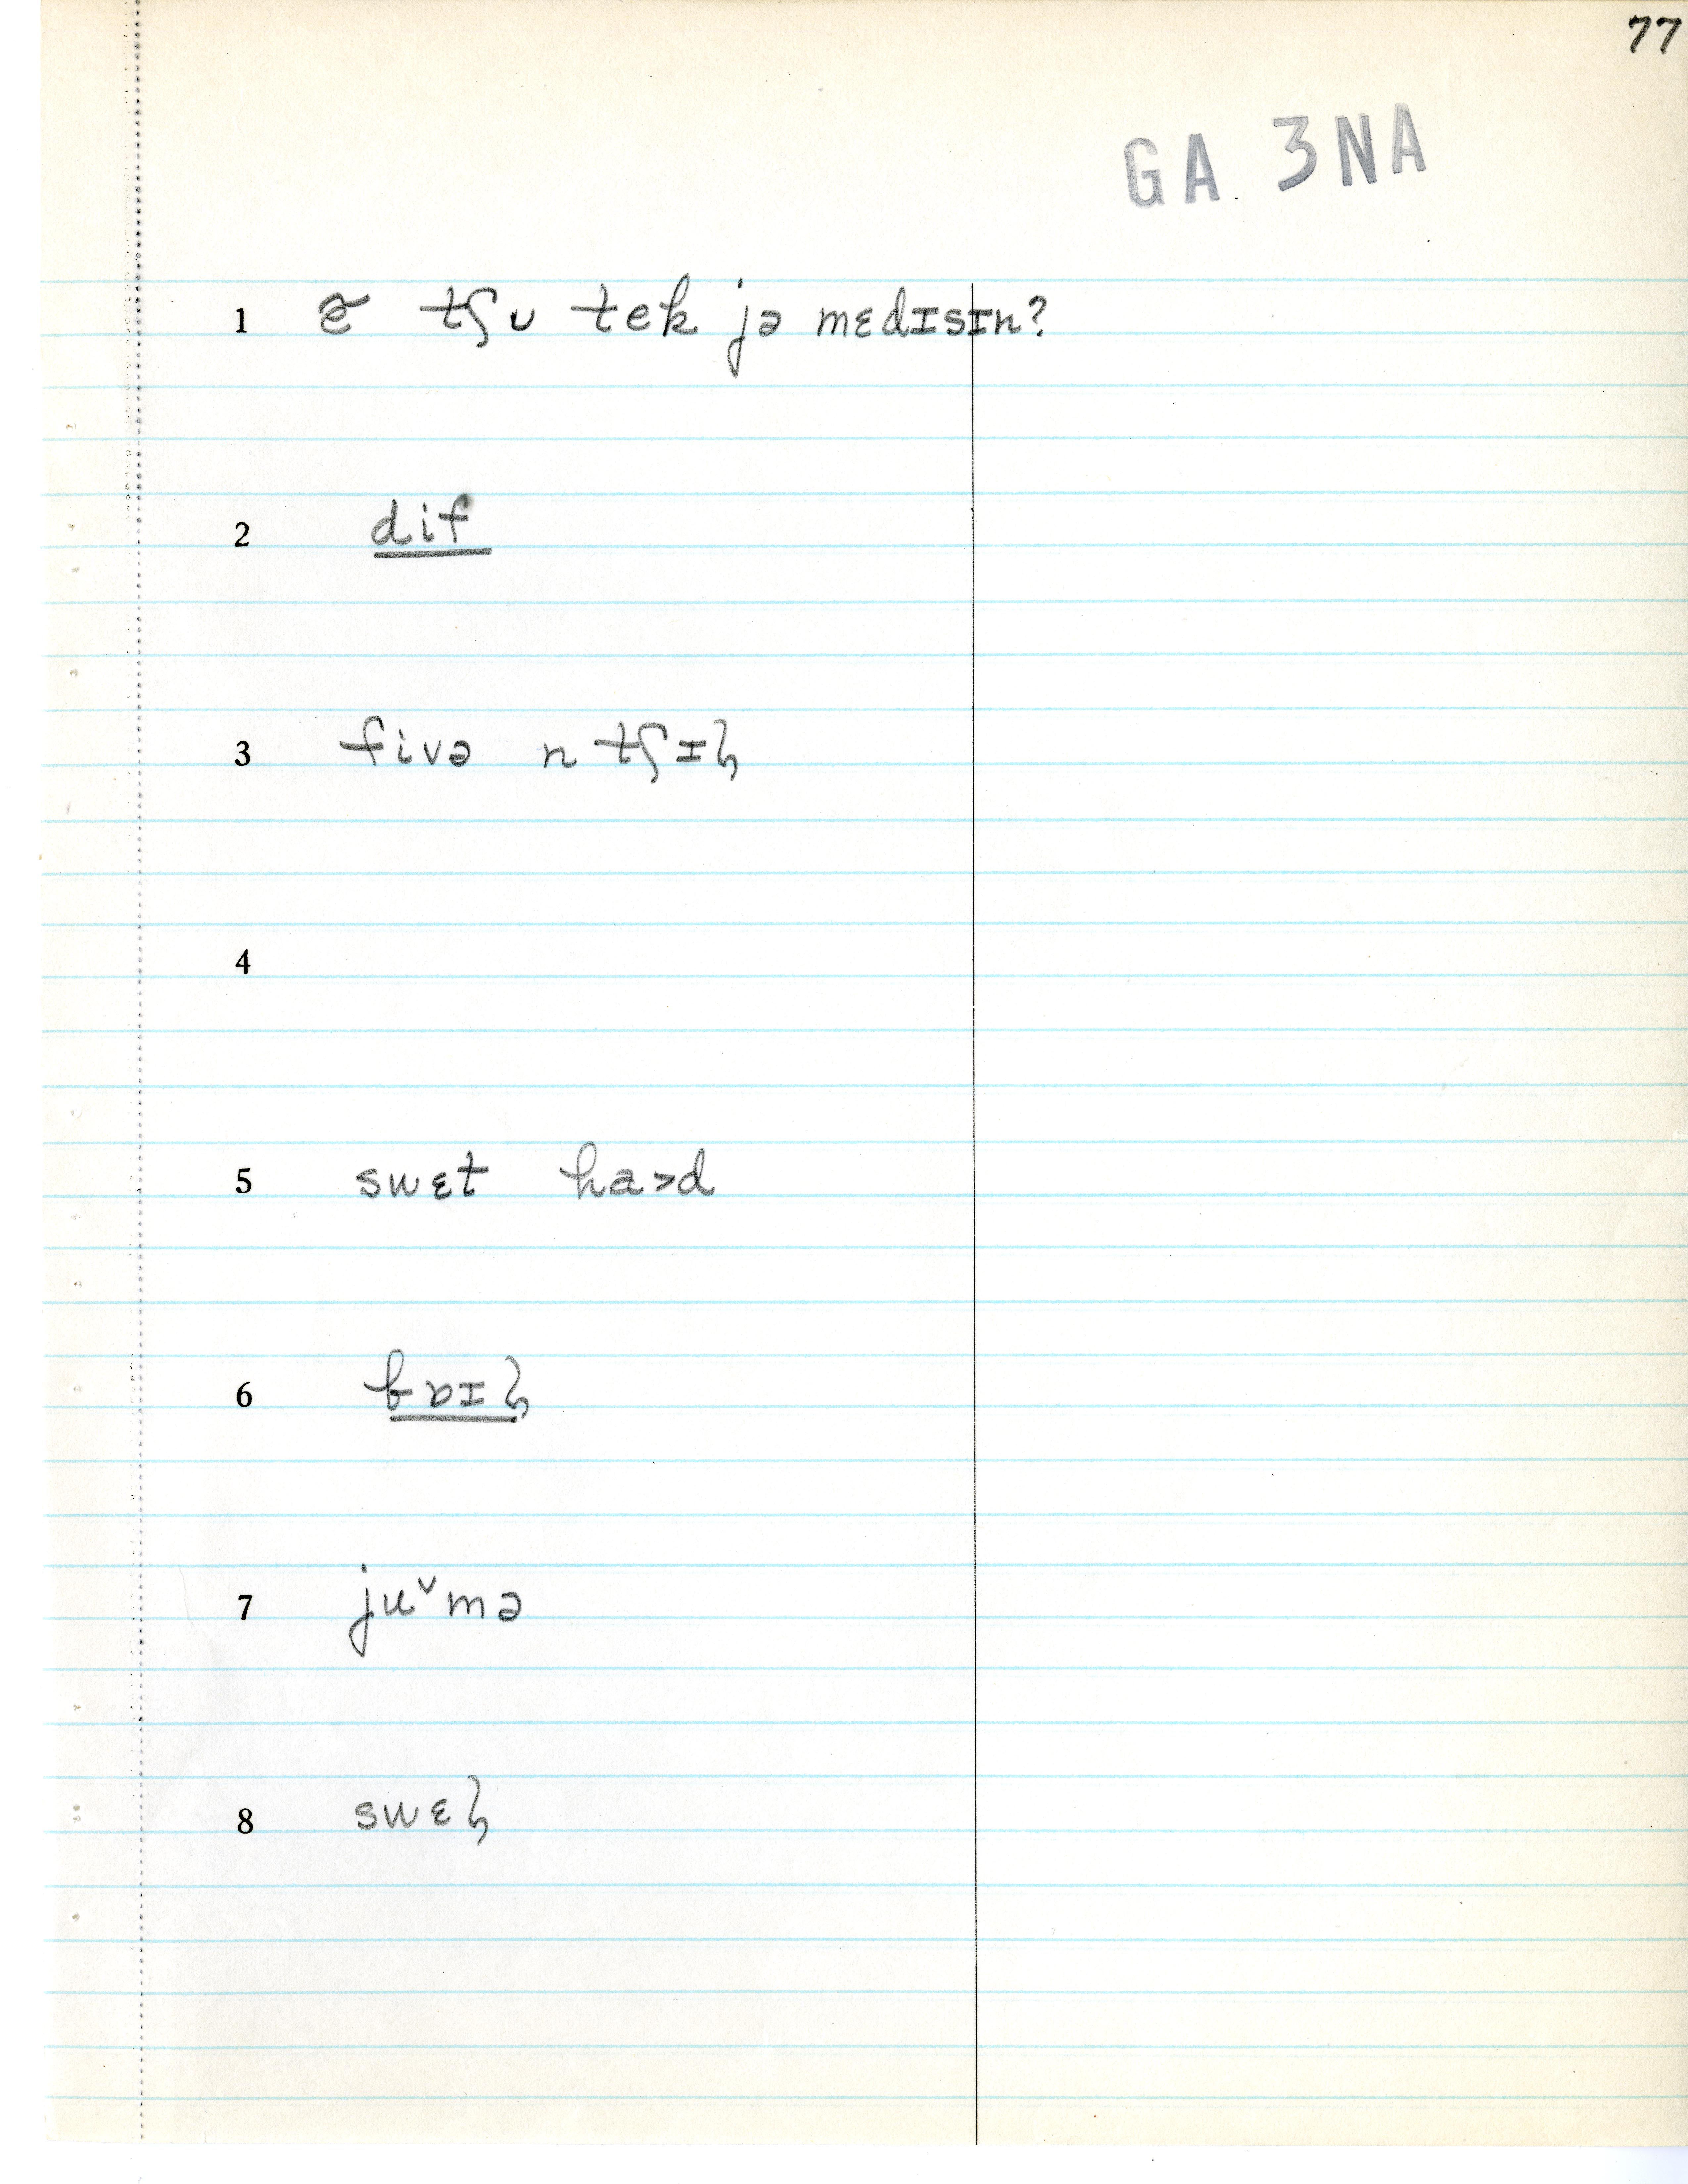 77
GA 3NA
1 ẽ tʃu tek jə mɛdɪsɪn?
2 dif
3 fivə n tʃɪɫ
4
5 swɛt ha>d
6 bɒɪɫ
7 juᵛmə
8 swɛɫ